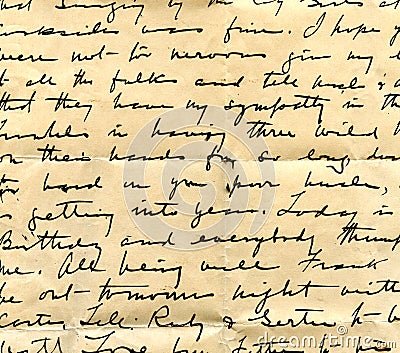 Singing by the
was fine. I hope y
were not too nervous give my l
to all the folks and tell
that they have my sympathy in th
troubles in having three wild
on their hands for so long,
hard on you poor
is getting into years. Today is
Birthday and everybody thump
me. All being well Frank
be out tomorrow night with
Ruby & Gertie to be
Love